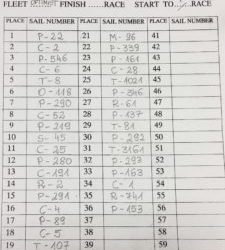 FLEET OPTIMIST FINISH ......RACE START TO ......RACE
PLACE SAIL NUMBER PLACE SAIL NUMBER PLACE SAIL NUMBER
1 P-22 21 M-96 41
2 C-2 22 P-339 42
3 P-546 23 P-161 43
4 C-6 24 C-28 44
5 T-8 25 T-1021 45
6 D-118 26 P-346 46
7 P-290 27 R-61 47
8 C-52 28 P-137 48
9 P-219 29 T-81 49
10 S-45 30 P-292 50
11 C-25 31 T-3161 51
12 P-280 32 P-293 52
13 C-191 33 P-163 53
14 R-2 34 C-1 54
15 P-291 35 R-741 55
16 C-4 36 P-153 56
17 P-89 37 57
18 C-5 38 58
19 T-107 39 59